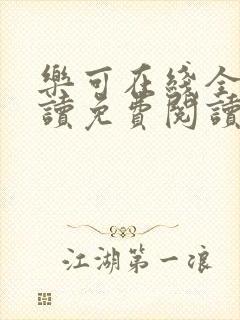 樂可在綫全
讀免費閱讀
江湖第一浪